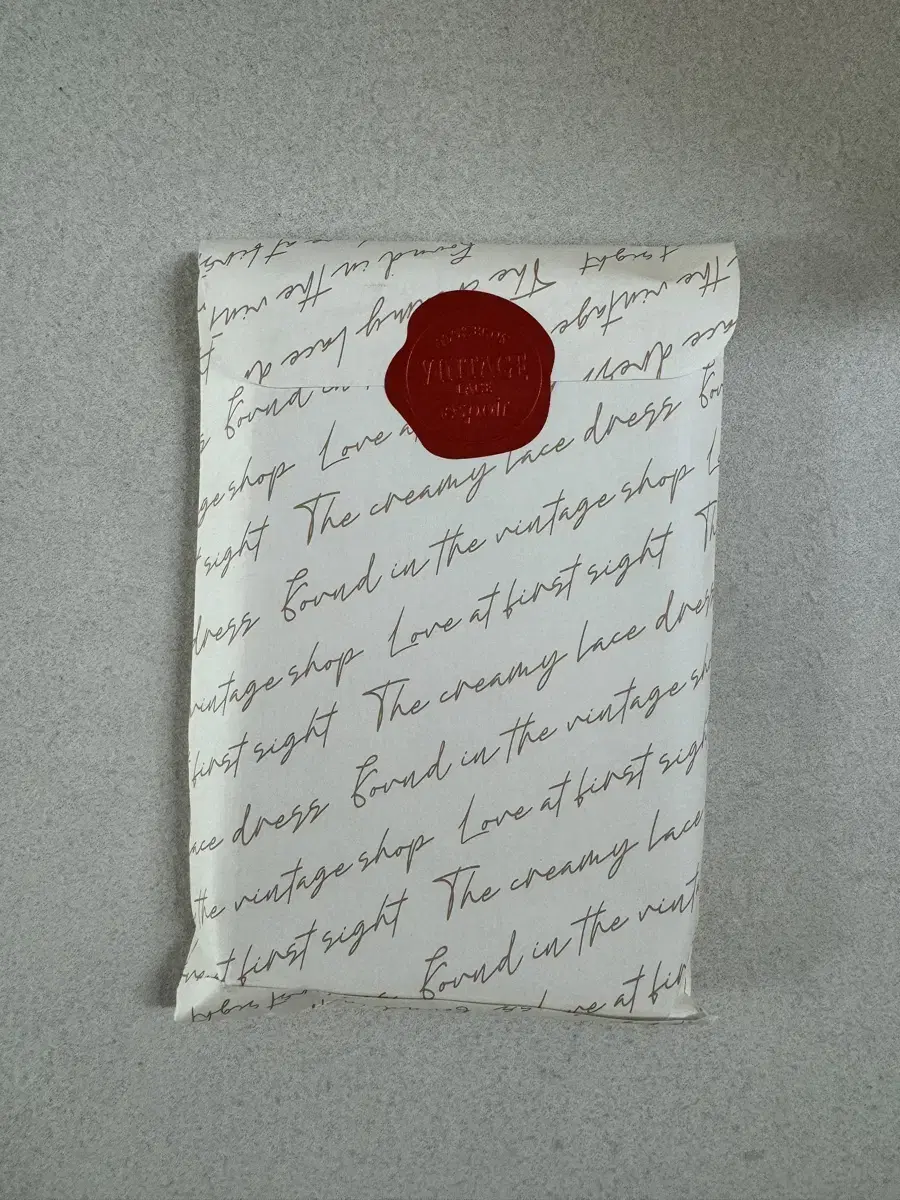 at firs
found in the vint
The
sight
the vintage
lace
ace dress
VINTAGE
LACE
espoir
found in
geshop Love a
sight The creamy lace dress fou
dress found in the vintage shop L
vintage shop Love at first sight Th
first sight The creamy lace dres
ace dress found in the vintage sh
the vintage shop Love at first sigh
at first sight The creamy lace
found in the vint
ve at fir